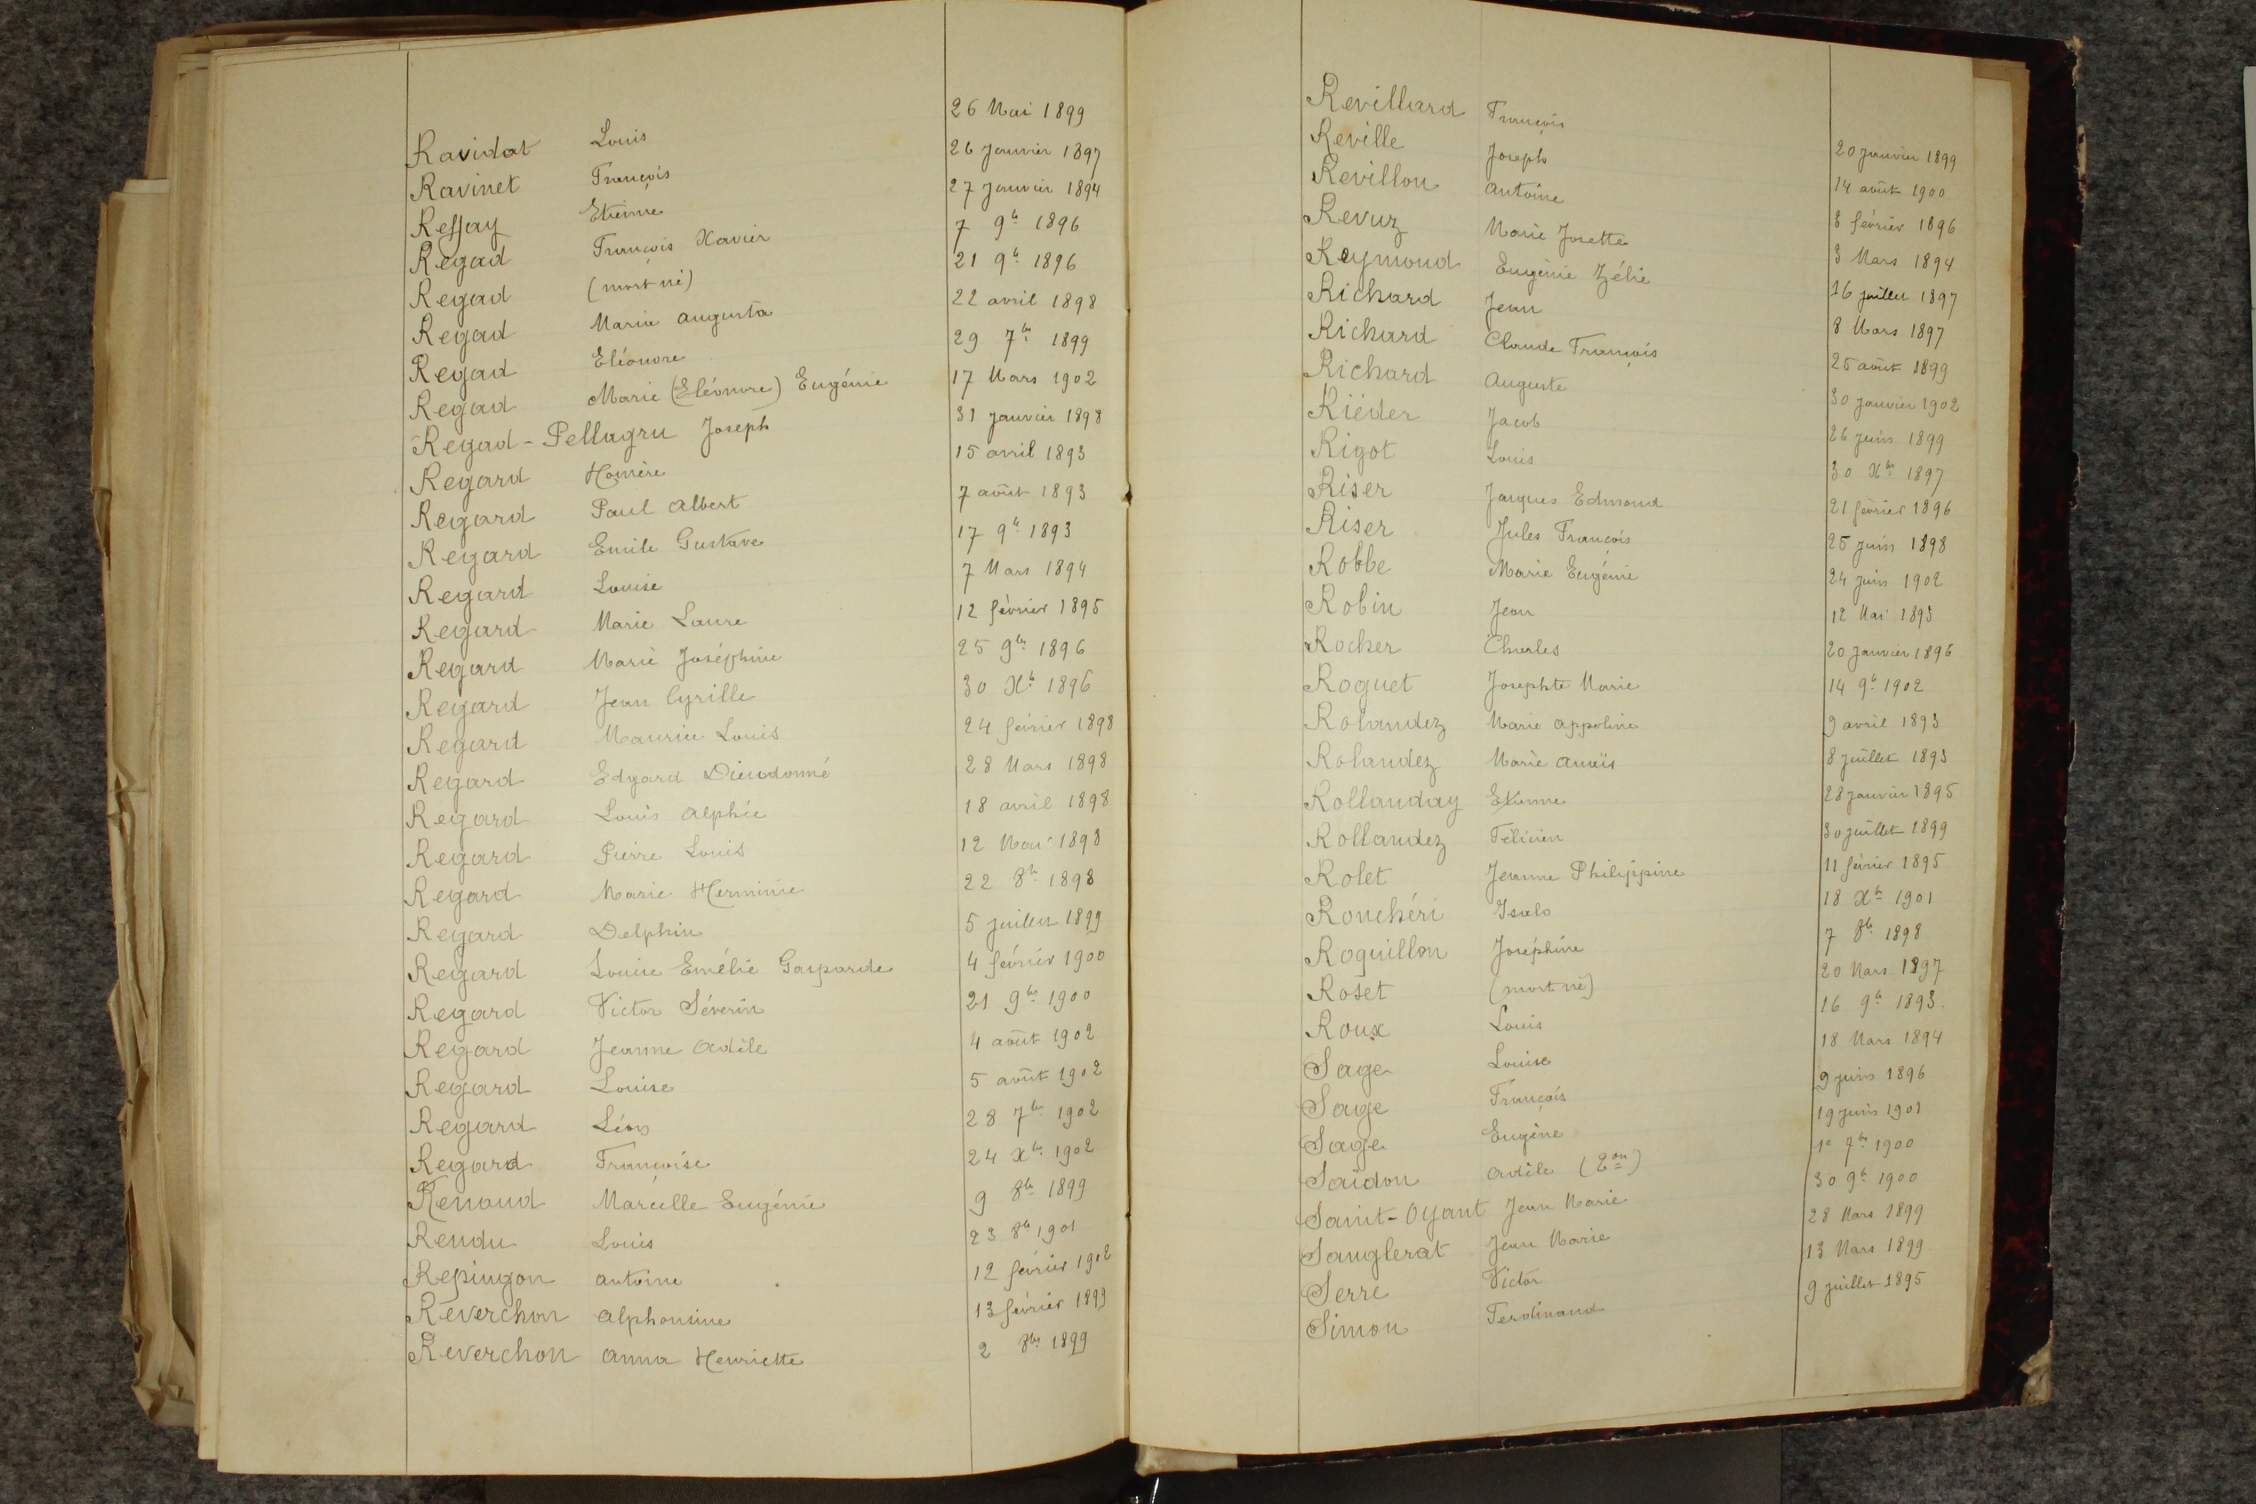 Ravidat Louis 26 Mai 1899
Ravinet François 26 Janvier 1897
Reffay Etienne 27 Janvier 1894
Regad François Xavier 7 9bre 1896
Regad (mort né) 21 9bre 1896
Regad Maria Augusta 22 avril 1898
Regad Eléonore 29 7bre 1899
Regad Marie (Eléonore) Eugénie 17 Mars 1902
Regad-Pellagru Joseph 31 Janvier 1898
Regard Homère 15 avril 1893
Regard Paul Albert 7 août 1893
Regard Emile Gustave 17 9bre 1893
Regard Louise 7 Mars 1894
Regard Marie Laure 12 février 1895
Regard Marie Joséphine 25 9bre 1896
Regard Jean Cyrille 30 Xbre 1896
Regard Maurice Louis 24 février 1898
Regard Edgard Dieudonné 28 Mars 1898
Regard Louis Alphée 18 avril 1898
Regard Pierre Louis 12 Mai 1898
Regard Marie Herminie 22 8bre 1898
Regard Delphin 5 juillet 1899
Regard Louise Emélie Gasparde 4 février 1900
Regard Victor Séverin 21 9bre 1900
Regard Jeanne Adèle 4 août 1902
Regard Louise 5 août 1902
Regard Léon 28 7bre 1902
Regard Françoise 24 Xbre 1902
Renaud Marcelle Eugénie 9 8bre 1899
Rendu Louis 23 8bre 1901
Repingon Antoine 12 février 1902
Reverchon Alphonsine 13 février 1899
Reverchon Anna Henriette 2 8bre 1899
Revillard François 20 Janvier 1899
Reville Joseph 14 août 1900
Revillon Antoine 8 février 1896
Revuz Marie Josette 3 Mars 1894
Reymond Eugénie Zélie 16 juillet 1897
Richard Jean 8 Mars 1897
Richard Claude François 25 août 1899
Richard Auguste 30 Janvier 1902
Riéder Jacob 26 juin 1899
Rigot Louis 30 Xbre 1897
Riser Jacques Edmond 21 février 1896
Riser Jules François 25 juin 1898
Robbe Marie Eugénie 24 juin 1902
Robin Jean 12 Mai 1893
Rocher Charles 20 Janvier 1896
Roguet Josephte Marie 14 9bre 1902
Rolandez Marie Appoline 9 avril 1893
Rolandez Marie Anaïs 8 juillet 1893
Rollanday Etienne 28 Janvier 1895
Rollandez Félicien 30 juillet 1899
Rolet Jeanne Philippine 11 février 1895
Ronchéri Isalo 18 Xbre 1901
Roquillon Joséphine 7 8bre 1898
Roset (mort né) 20 Mars 1897
Roux Louis 16 9bre 1893
Sage Louise 18 Mars 1894
Sage François 9 juin 1896
Sage Eugène 19 juin 1901
Saidon Adèle (2on) 1e 7bre 1900
Saint-Oyant Jean Marie 30 9bre 1900
Sanglerat Jean Marie 28 Mars 1899
Serre Victor 13 Mars 1899
Simon Ferdinand 9 juillet 1895